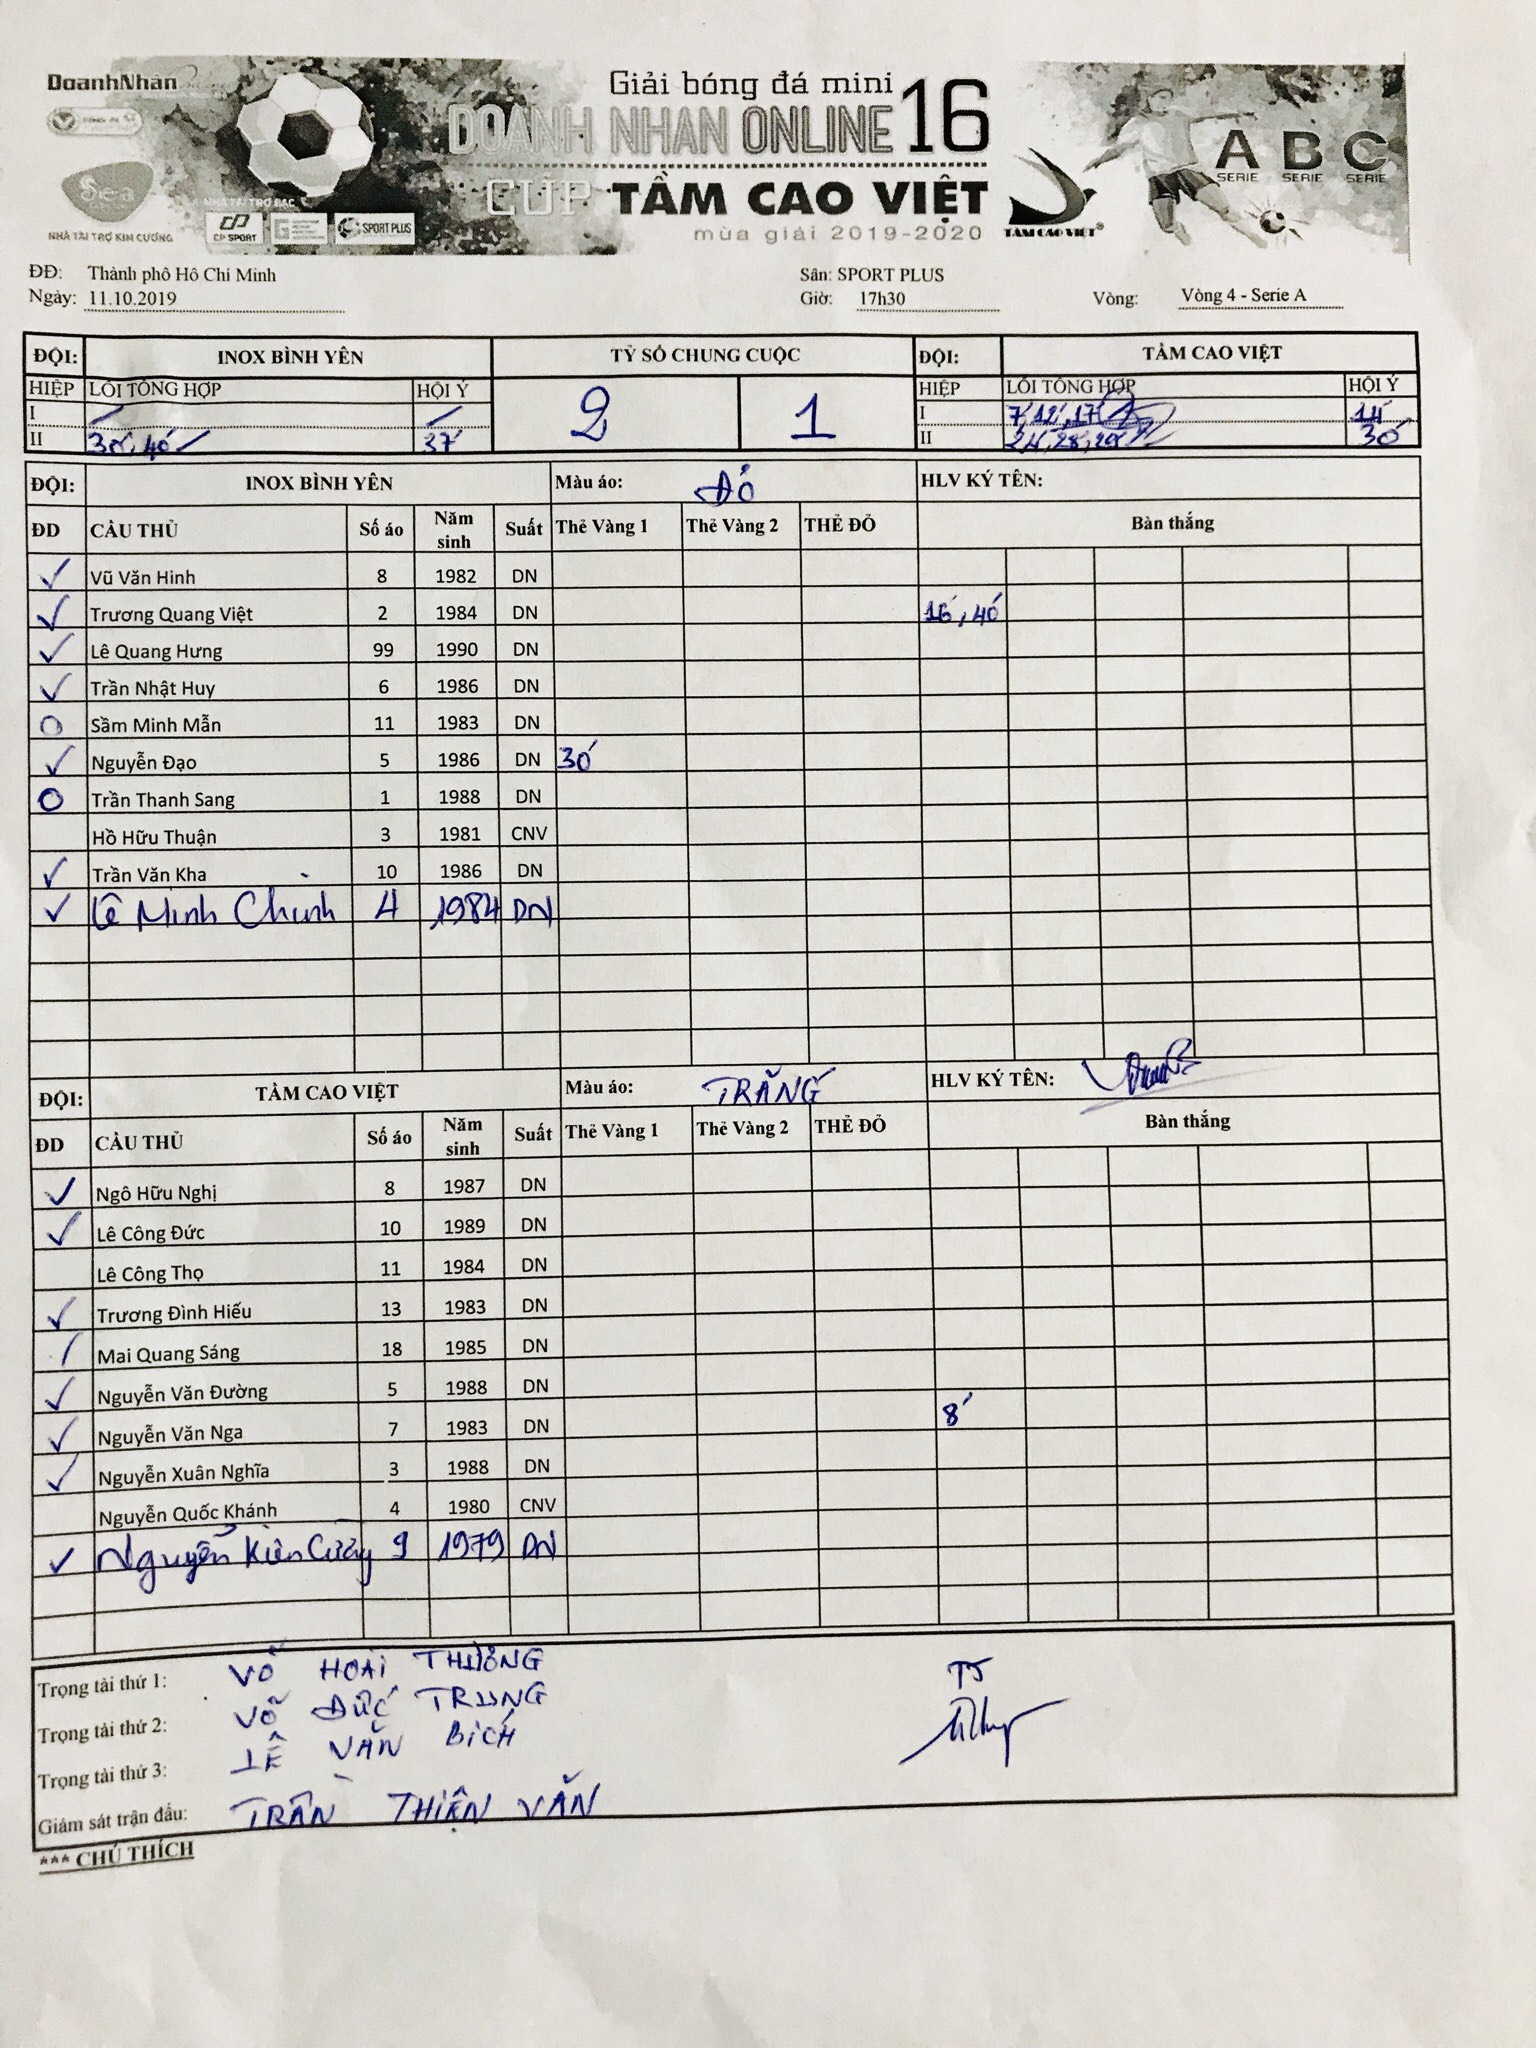 DoanhNhân
Giải bóng đá mini
DOANH NHAN ONLINE 16
CUP TẦM CAO VIỆT
mùa giải 2019-2020
Sea
NHÀ TÀI TRỢ KIM CƯƠNG
NHÀ TÀI TRỢ BẠC
CP SPORT
SPORT PLUS
TÂM CAO VIỆT®
A B C
SERIE SERIE SERIE
ĐĐ: Thành phố Hồ Chí Minh Sân: SPORT PLUS
Ngày: 11.10.2019 Giờ: 17h30 Vòng: Vòng 4 - Serie A
ĐỘI: INOX BÌNH YÊN TỶ SỐ CHUNG CUỘC ĐỘI: TẦM CAO VIỆT
HIỆP LỖI TỔNG HỢP HỘI Ý 2 1 HIỆP LỖI TỔNG HỢP HỘI Ý
I I 7', 12', 17' 14'
II 30', 40' 37' II 24', 28', 29' 30'
ĐỘI: INOX BÌNH YÊN Màu áo: Đỏ HLV KÝ TÊN:
ĐD CẦU THỦ Số áo Năm sinh Suất Thẻ Vàng 1 Thẻ Vàng 2 THẺ ĐỎ Bàn thắng
✓ Vũ Văn Hinh 8 1982 DN
✓ Trương Quang Việt 2 1984 DN 16', 40'
✓ Lê Quang Hưng 99 1990 DN
✓ Trần Nhật Huy 6 1986 DN
O Sầm Minh Mẫn 11 1983 DN
✓ Nguyễn Đạo 5 1986 DN 30'
O Trần Thanh Sang 1 1988 DN
Hồ Hữu Thuận 3 1981 CNV
✓ Trần Văn Kha 10 1986 DN
✓ Lê Minh Chính 4 1984 DN
ĐỘI: TẦM CAO VIỆT Màu áo: TRẮNG HLV KÝ TÊN:
ĐD CẦU THỦ Số áo Năm sinh Suất Thẻ Vàng 1 Thẻ Vàng 2 THẺ ĐỎ Bàn thắng
✓ Ngô Hữu Nghị 8 1987 DN
✓ Lê Công Đức 10 1989 DN
Lê Công Thọ 11 1984 DN
✓ Trương Đình Hiếu 13 1983 DN
/ Mai Quang Sáng 18 1985 DN
✓ Nguyễn Văn Đường 5 1988 DN
✓ Nguyễn Văn Nga 7 1983 DN 8'
✓ Nguyễn Xuân Nghĩa 3 1988 DN
Nguyễn Quốc Khánh 4 1980 CNV
✓ Nguyễn Kiên Cường 9 1979 DN
Trọng tài thứ 1: VÕ HOÀI THƯƠNG
Trọng tài thứ 2: VÕ ĐỨC TRUNG
Trọng tài thứ 3: LÊ VĂN BÍCH
Giám sát trận đấu: TRẦN THIỆN VĂN
*** CHÚ THÍCH